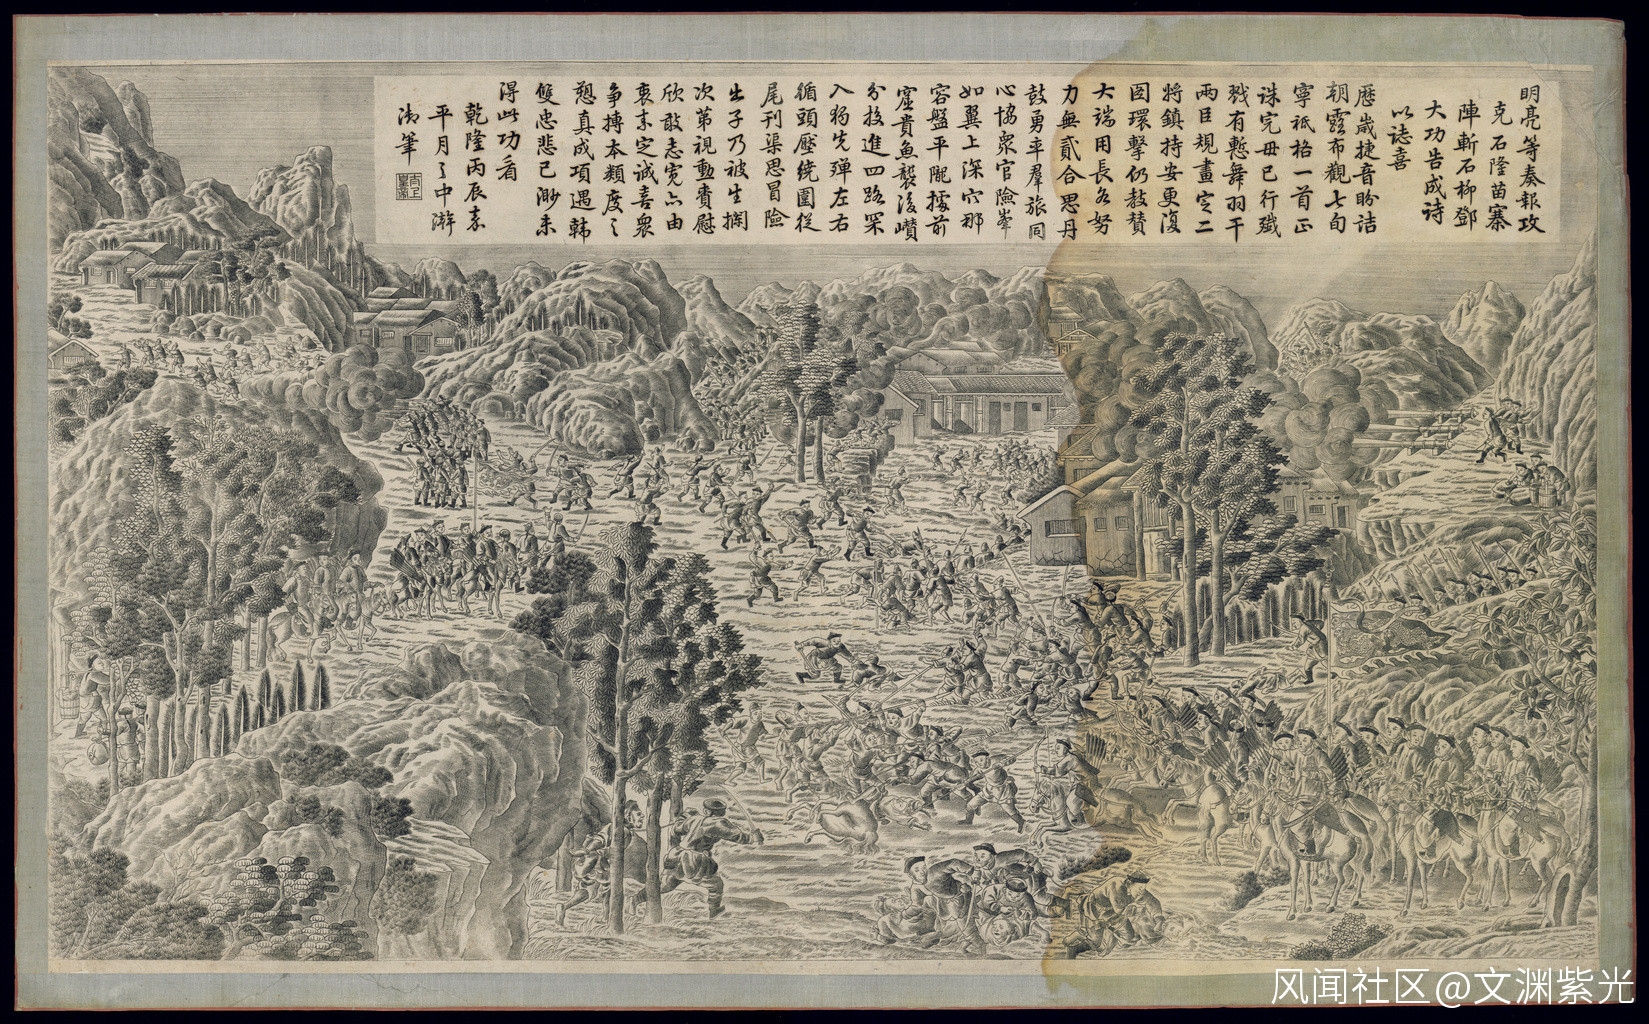 明亮等奏報攻
克石隆苗寨
陣斬石柳鄧
大功告成詩
以誌喜
歷歲捷音盼詰
朝露布觀七旬
寧祗格一首正
誅完毋已行殲
戮有慙舞羽干
兩臣規畫定二
將鎮持安更復
環擊仍敖贊
大端用長各努
力無貳合思丹
鼓勇率羣旅同
心協衆官險峯
如翼上深穴那
容盤平隴擄前
窪貴魚襲後巑
分投進四路罙
入獨先殫左右
循頭壓繞圍從
尾刊渠思冒險
出子乃被生擒
次第視勳賚慰
欣敢志寬六由
衷素定誠喜衆
争摶本類度之
愬真成項遇韓
雙忠悲已渺未
得此功看
乾隆丙辰嘉
平月之中澣
御筆
风闻社区@文渊紫光